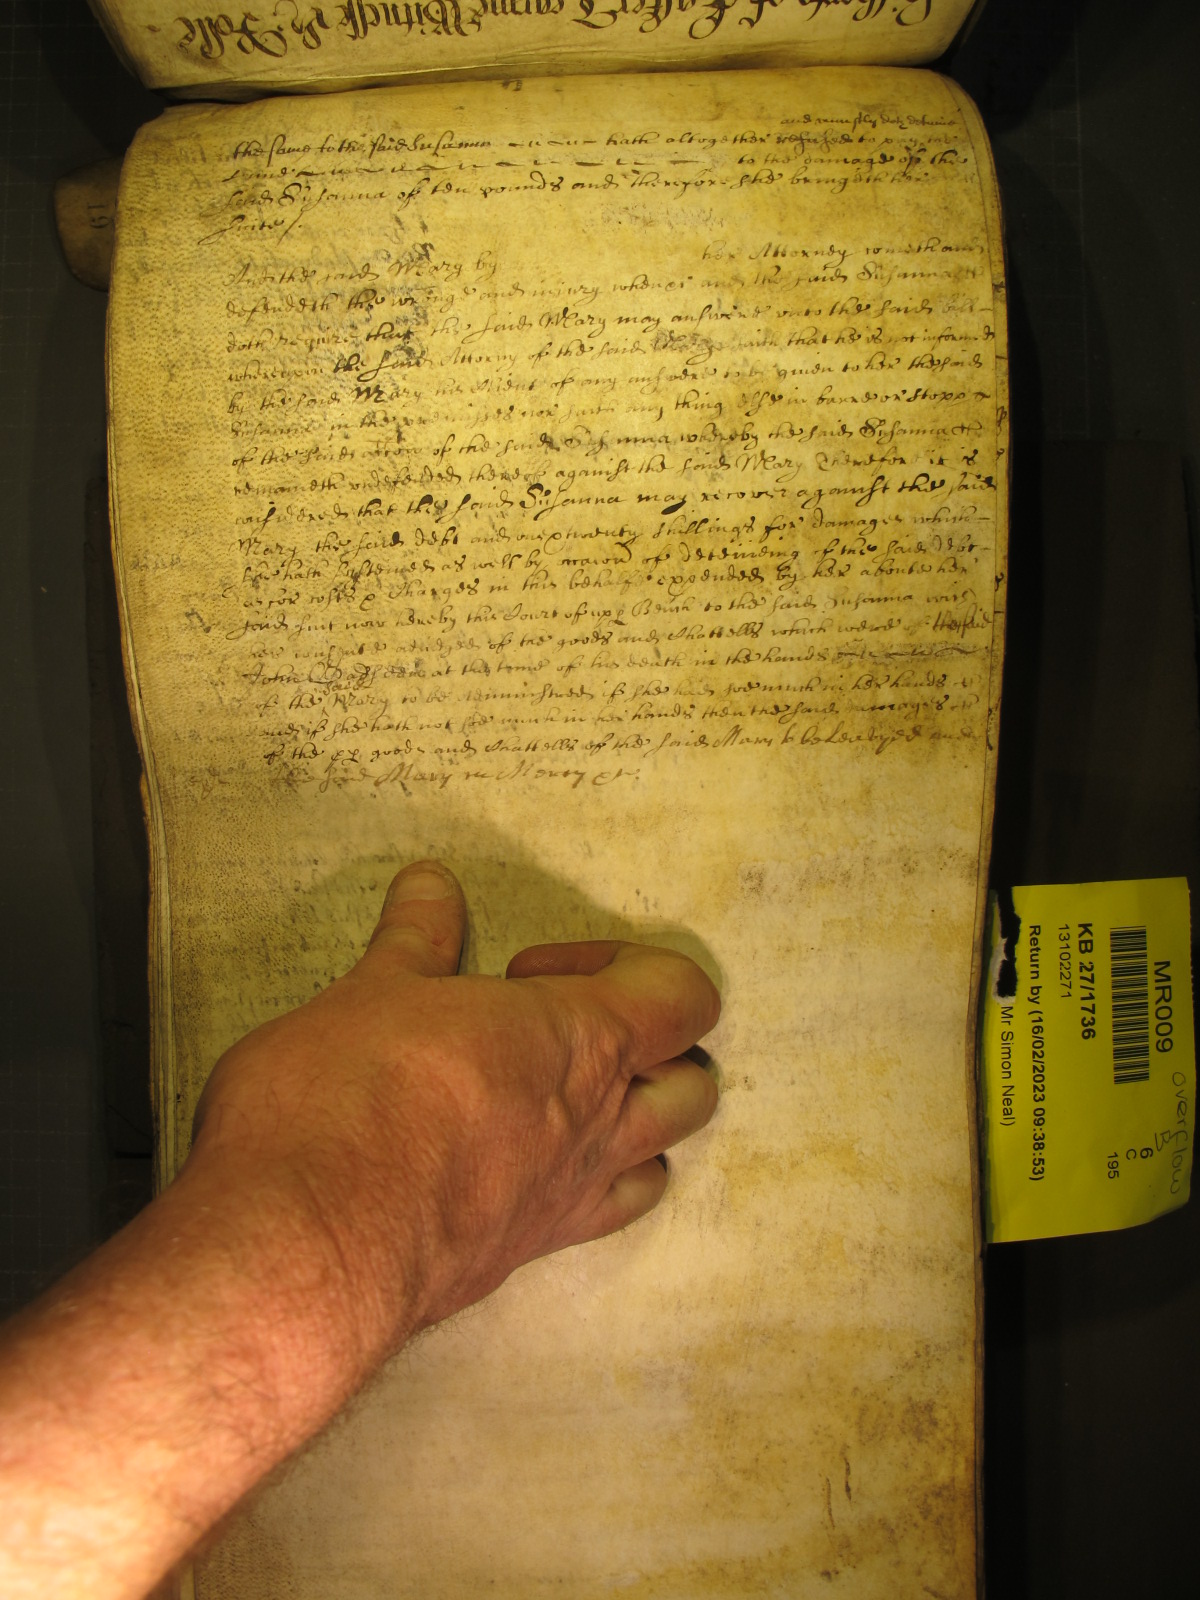 of Easter Terme Witness R: Rolle
and unjustly doth detaine
the same to the said Susanna hath altogether refused to pay
to the damage of the
said Susanna of ten pounds and therefore she bringeth her
suite /.
And the said Mary by her Attorney cometh and
defendeth the wronge and injury when &c and the said Susanna
doth require that the said Mary may answere unto the said bill
whereupon the said Attorny of the said saith that he is not informed
by the said Mary his Client of any answere to be given to her the said
Susanna in the premisses nor saith any thing else in barre or stopp
of the said accon of the said Susanna whereby the said Susanna
remaineth undefended thereof against the said Mary Therefore it is
considered that the said Susanna may recover against the said
Mary the said debt and one & twenty shillings for damages which
she hath susteined as well by occacon of deteineing of the said debt
as for costs & Charges in this behalfe expended by her about her
said suit now here by this Court of upp Bench to the said Susanna with
her consent adiudged of the goods and Chattells which were of the said
John at the time of his death in the hands
of the said Mary to be administred if she hath soe much in her hands
and if she hath not soe much in her hands then the said damages
of the pp goods and Chattells of the said Mary to be Leavyed and
the said Mary in Mercy &c.
MR009
KB 27/1736
13102271
Return by (16/02/2023 09:38:53)
Mr Simon Neal)
overflow
B
6
C
195